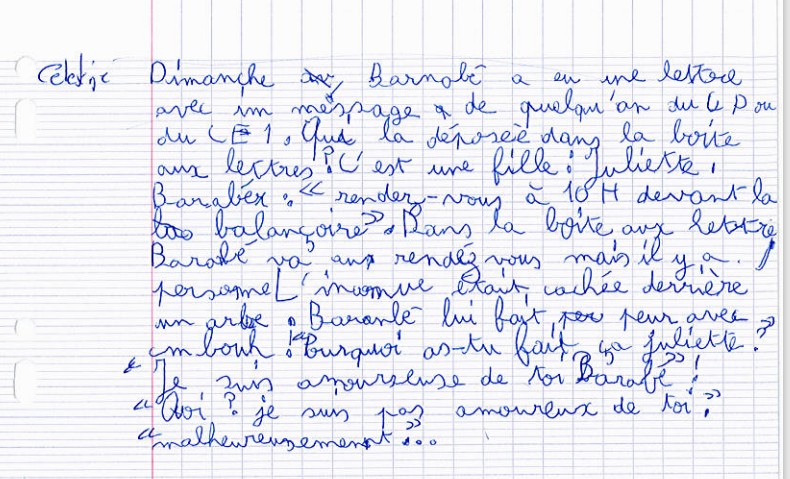 Dimanche Barnabé a eu une lettre
avec un message de quelqu'un du CP ou
du CE1. Qui la déposée dans la boîte
aux lectres? C'est une fille : Juliette,
Barabéx : « rendez-vous à 10H devant la
balançoire ». Dans la boîte aux lettre
Barabé va aux rendez vous mais il y a
personne L'inconnue était cachée derrière
un arbre. Baranbé lui fait peur avec
un bouh ! « Pourquoi as-tu fait ça Juliette ? »
« Je suis amourseuse de toi Barabé » !
« Quoi ? je suis pas amoureux de toi, »
« malheureusement »...